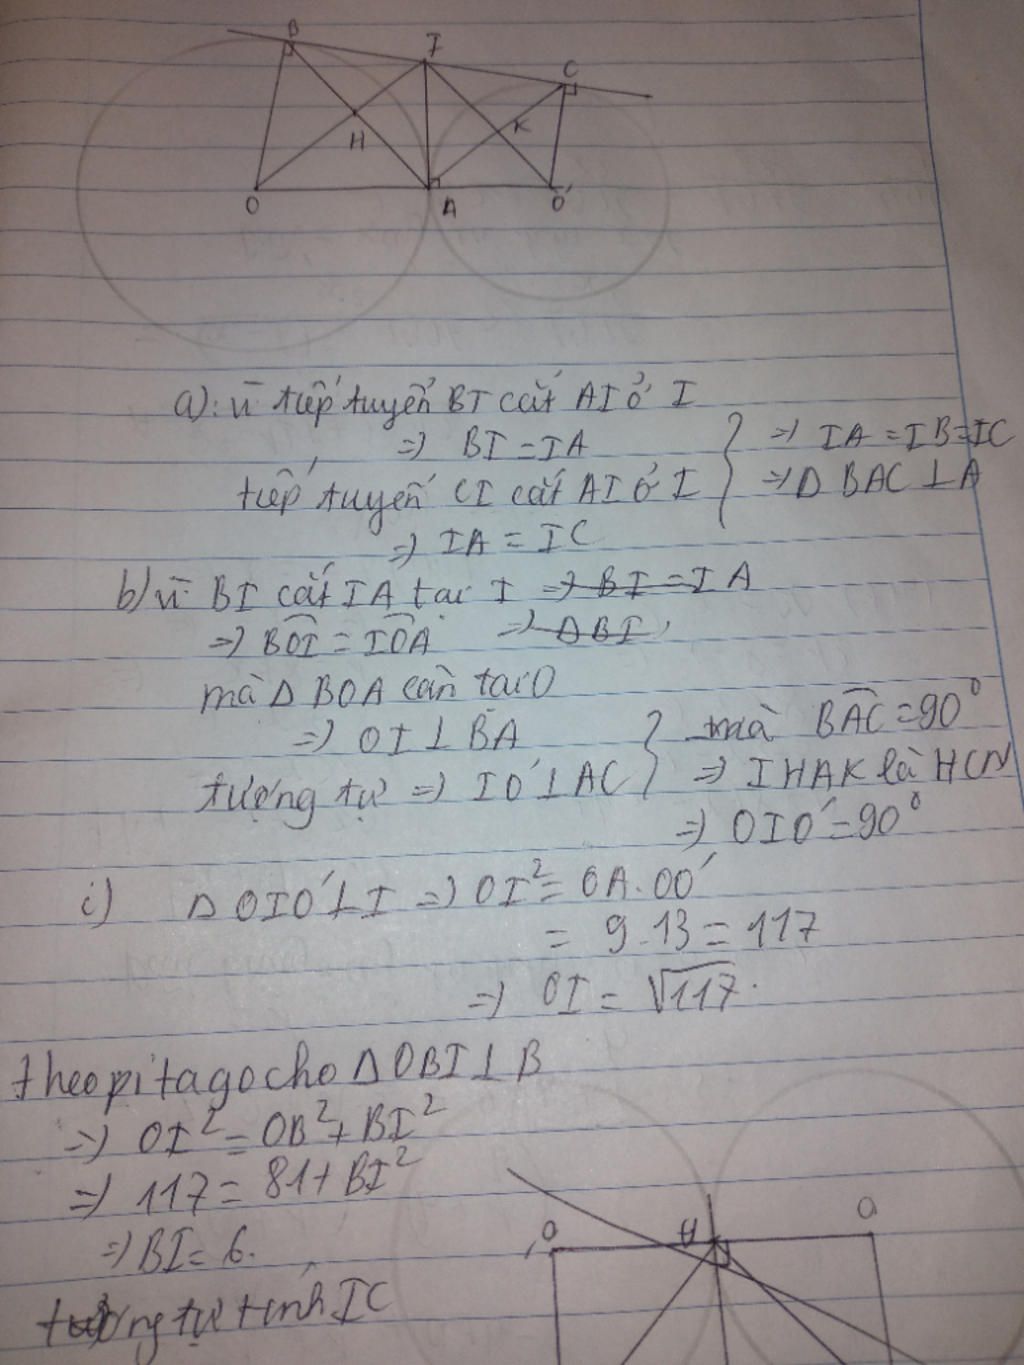 B
I
C
H
K
O
A
O'
a): vì tiếp tuyến BI cắt AI ở I
=> BI = IA
tiếp tuyến CI cắt AI ở I
=> IA = IC
} => IA = IB = IC
=> Δ BAC ⊥ A
b) vì BI cắt IA tại I => BI = IA
=> BOI = IOA => ΔBI
mà Δ BOA cân tại O
=> OI ⊥ BA
tượng tự => IO' ⊥ AC
} mà BAC = 90°
=> IHAK là HCN
=> OIO' = 90°
i) Δ OIO' ⊥ I => OI² = OA.OO'
= 9.13 = 117
=> OI = √117.
theo pitago cho Δ OBI ⊥ B
=> OI² = OB² + BI²
=> 117 = 81 + BI²
=> BI = 6.
tương tự tính IC
O
O